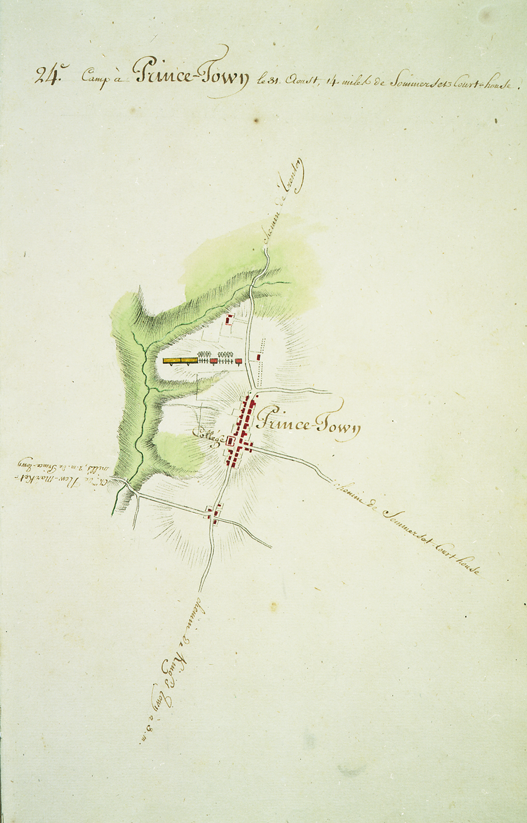 24.e Camp à Prince-Town le 31. Aoust, 14 miles de Sommerset Court-house.
chemin de Trenton
Prince-Town
College
ch. de New-Market
chemin de Sommerset Court house
chemin de King's Town à 3. m.